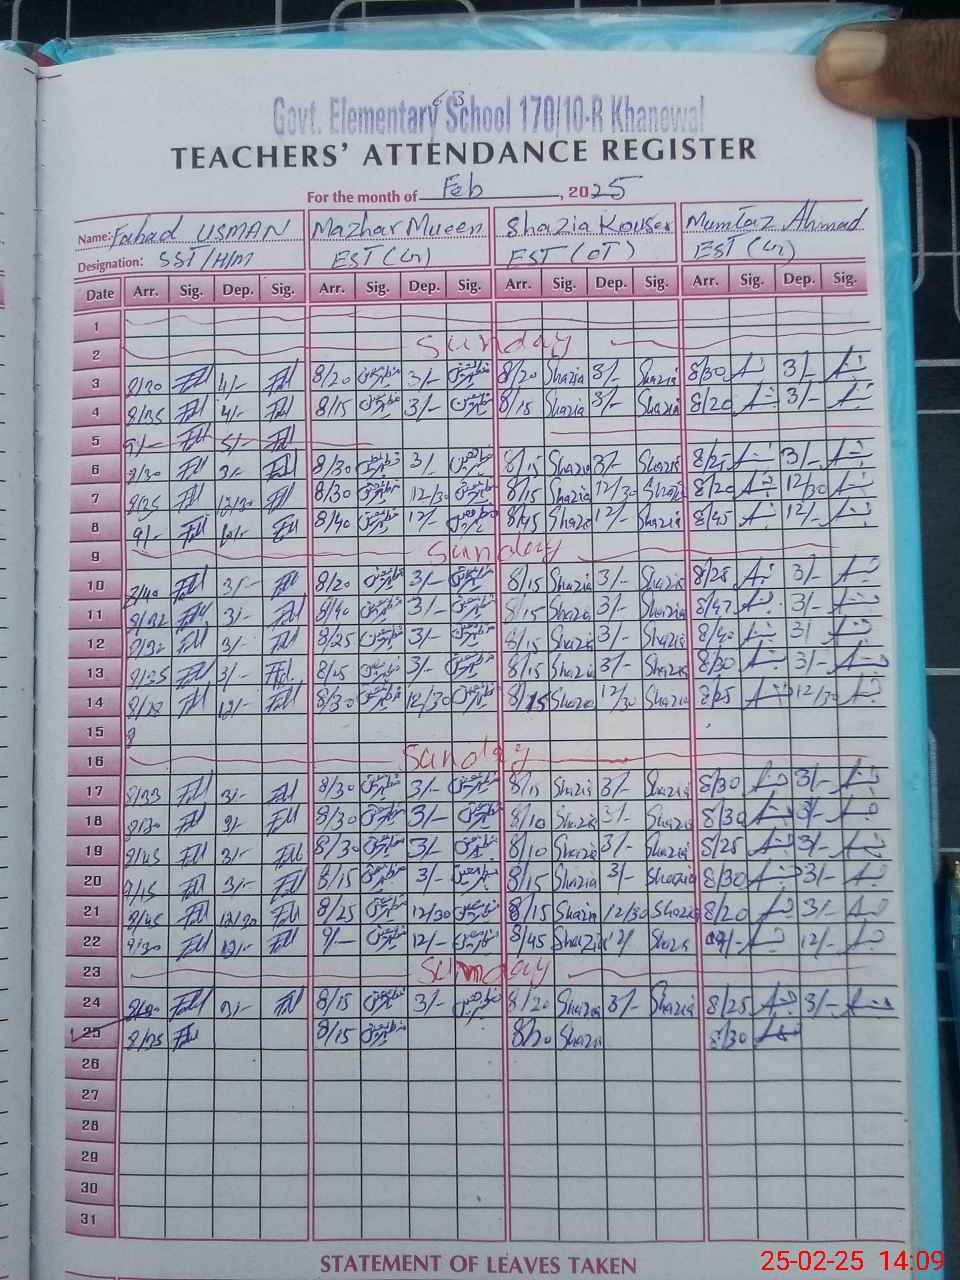 63
Govt. Elementary School 170/10-R Khanewal
TEACHERS' ATTENDANCE REGISTER
For the month of Feb, 2025
Name: Fahad USMAN Mazhar Mueen Shazia Kouser Mumtaz Ahmad
Designation: SST/H/M EST (Gr) EST (OT) EST (Gr)
Date Arr. Sig. Dep. Sig. Arr. Sig. Dep. Sig. Arr. Sig. Dep. Sig. Arr. Sig. Dep. Sig.
1
2 Sunday
3 8/20 4/- 8/20 3/- 8/20 Shazia 3/- Shazia 8/30 3/-
4 8/35 4/- 8/15 3/- 8/15 Shazia 3/- Shazia 8/20 3/-
5 9/- 5/-
6 8/30 3/- 8/30 3/- 8/15 Shazia 3/- Shazia 8/25 3/-
7 8/35 12/30 8/30 12/30 8/15 Shazia 12/30 Shazia 8/20 12/30
8 9/- 12/- 8/40 12/- 8/45 Shazia 12/- Shazia 8/45 12/-
9 Sunday
10 8/40 3/- 8/20 3/- 8/15 Shazia 3/- Shazia 8/25 3/-
11 8/32 3/- 8/40 3/- 8/15 Shazia 3/- Shazia 8/47 3/-
12 8/32 3/- 8/25 3/- 8/15 Shazia 3/- Shazia 8/40 3/
13 8/35 3/- 8/25 3/- 8/15 Shazia 3/- Shazia 8/30 3/-
14 12/- 8/30 12/30 8/15 Shazia 12/30 Shazia 8/25 12/30
15
16 Sunday
17 8/33 3/- 8/30 3/- 8/15 Shazia 3/- Shazia 8/30 3/-
18 8/30 3/- 8/30 3/- 8/10 Shazia 3/- Shazia 8/30 3/-
19 8/45 3/- 8/30 3/- 8/10 Shazia 3/- Shazia 8/25 3/-
20 9/15 3/- 8/15 3/- 8/15 Shazia 3/- Shazia 8/30 3/-
21 8/45 12/30 8/25 12/30 8/15 Shazia 12/30 Shazia 8/20 3/-
22 9/30 12/- 9/- 12/- 8/45 Shazia 12/ Shazia 9/- 12/-
23 Sunday
24 3/- 8/15 3/- 8/20 Shazia 3/- Shazia 8/25 3/-
25 8/35 8/15 8/20 Shazia 8/30
26
27
28
29
30
31
STATEMENT OF LEAVES TAKEN
25-02-25 14:09